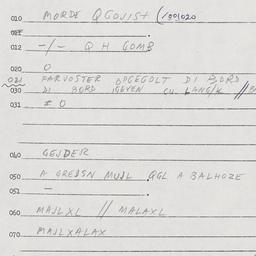 010 MORDE QGOUIST (/001020
011 .
012 -/- Q H GOMB
020 O
021 FARVOSTER OPGEGOLT DI BORD
030 DI BORD GEVEN CU LANG/K //
031 ≠ O
040 GEJDER
050 A GREJSN MUJL QGL A BALHOZE
051 — .
060 MAJLXL // MALAXL
070 MAJLXALAX